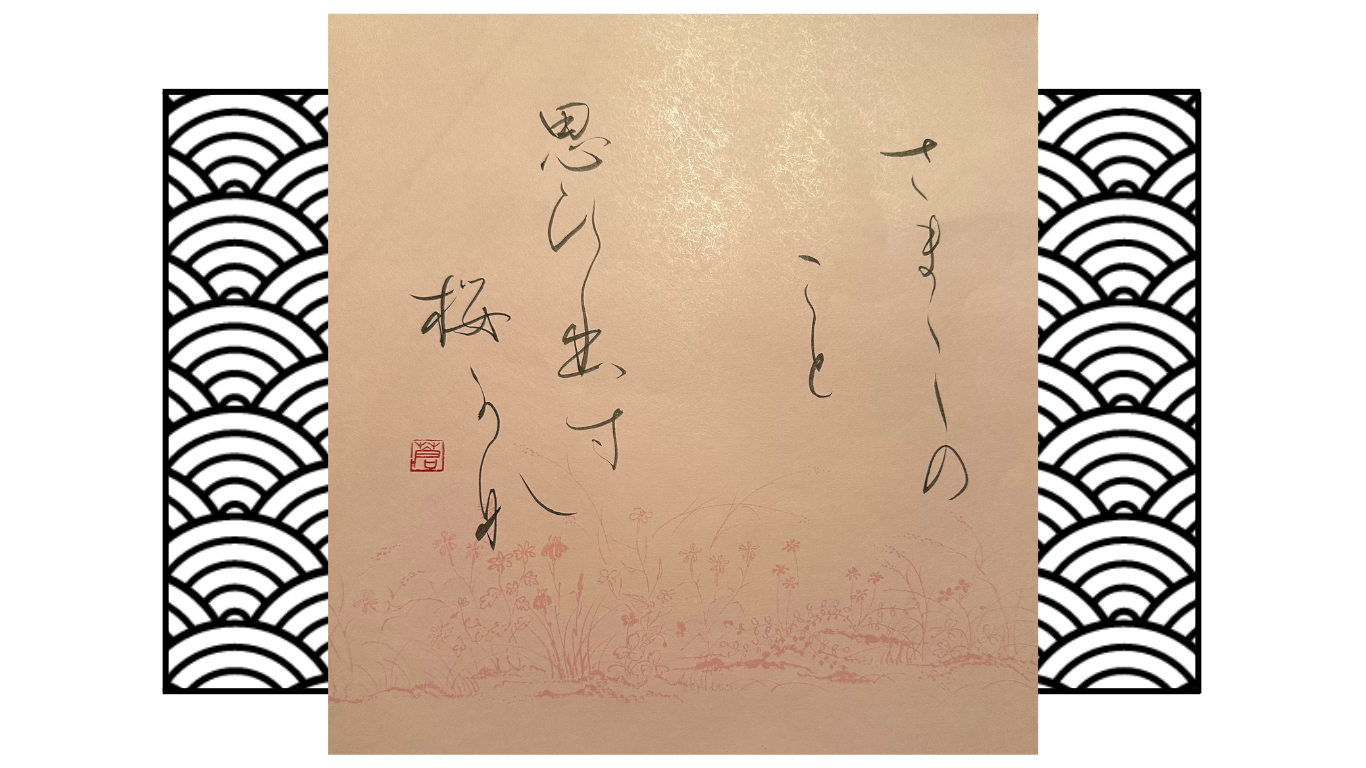 さま〴〵の
こと
思ひ出す
桜かな